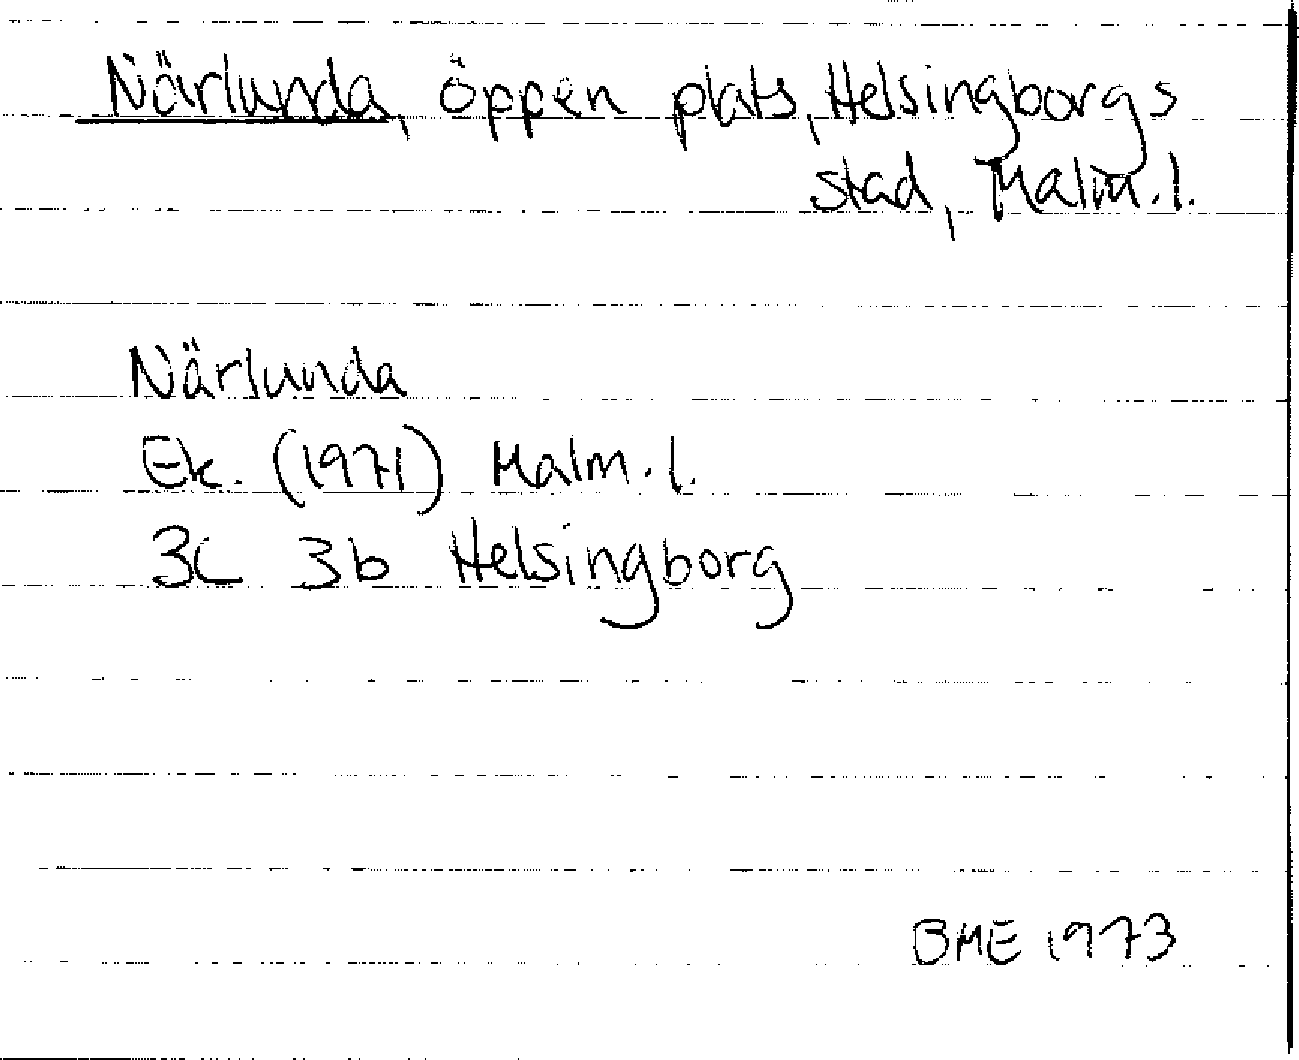 Närlunda, öppen plats, Helsingborgs
stad, Malm.l.
Närlunda
Ek. (1971) Malm.l.
3C 3b Helsingborg
BME 1973